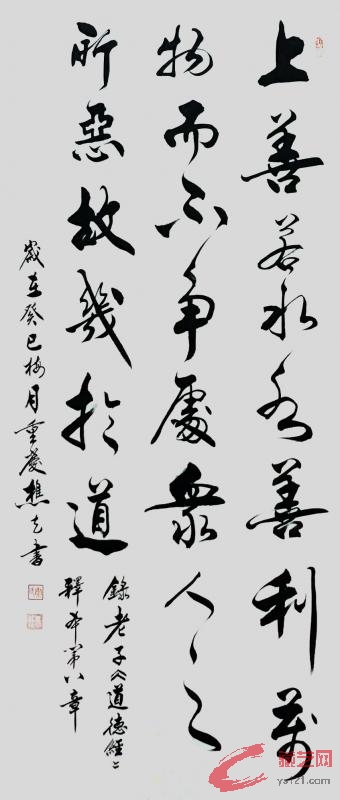 上善若水水善利萬
物而不争處衆人之
所惡故幾於道
錄老子《道德經》
釋本第八章
歲在癸巳梅月重慶樵書
ys121.com